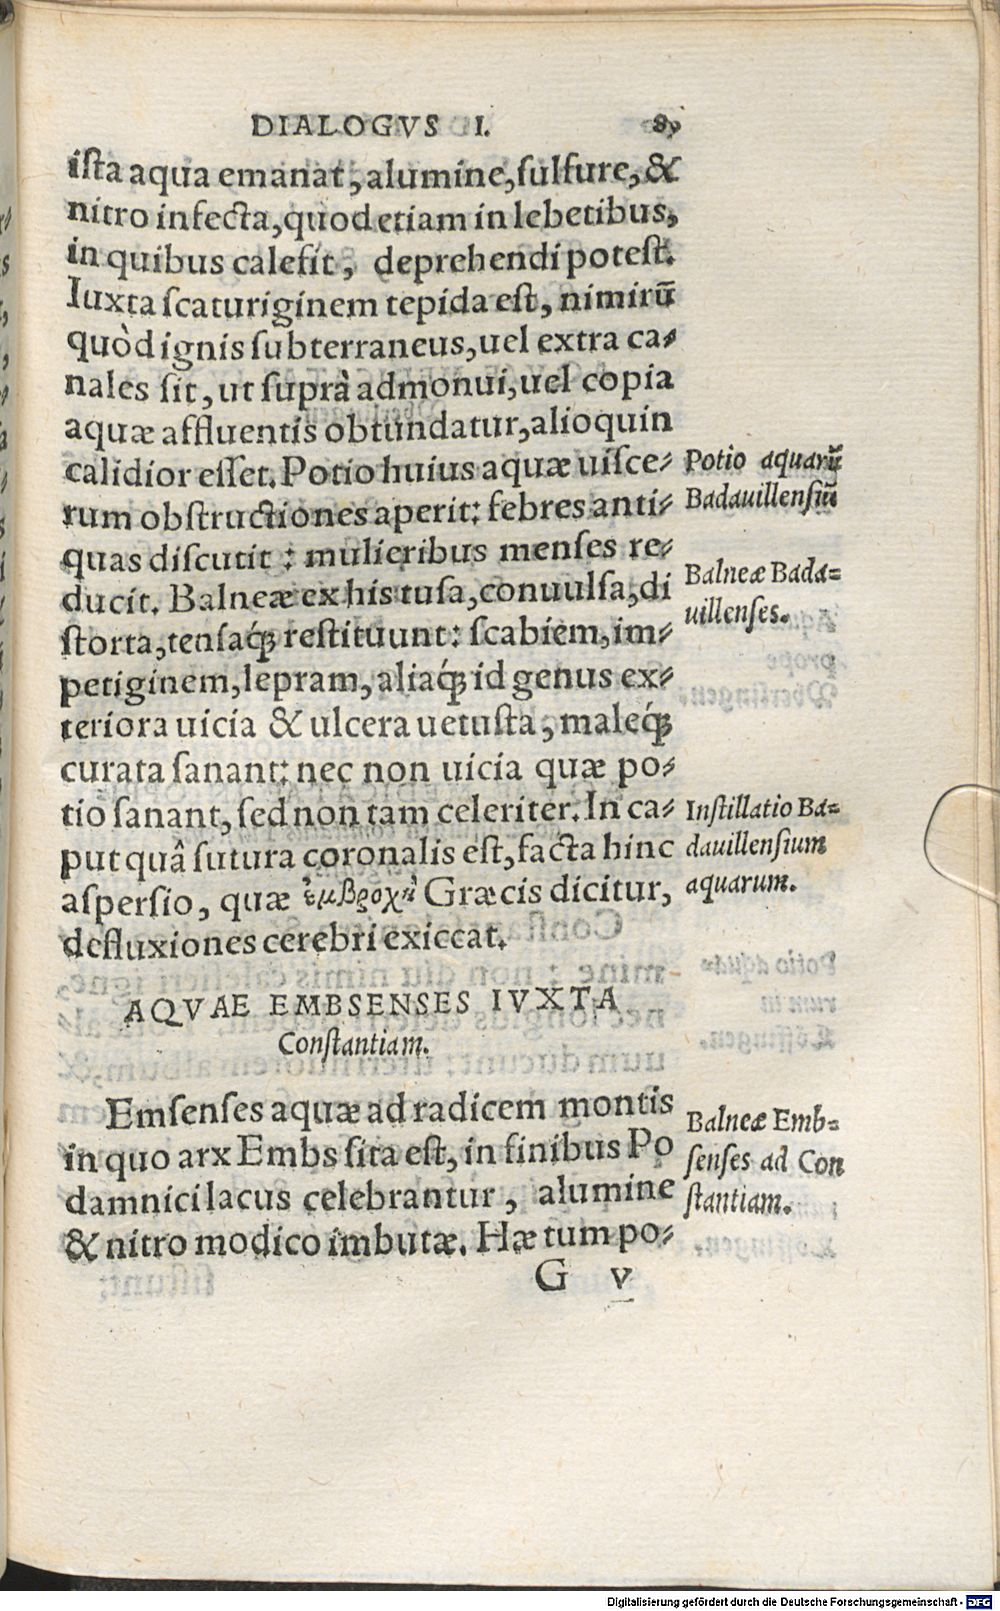 DIALOGVS I.
iſta aqua emanat, alumine, ſulfure, &
nitro infecta, quod etiam in lebetibus,
in quibus calefit, deprehendi poteſt.
Iuxta ſcaturiginem tepida eſt, nimirū
quòd ignis ſubterraneus, uel extra ca-
nales ſit, ut ſuprà admonui, uel copia
aquæ affluentis obtundatur, alioquin
calidior eſſet. Potio huius aquæ uiſce-
rum obſtructiones aperit: febres anti-
quas diſcutit: mulieribus menſes re-
ducit. Balneæ ex his tuſa, conuulſa, di
ſtorta, tenſaq́; reſtituunt: ſcabiem, im-
petiginem, lepram, aliaq́; id genus ex-
teriora uicia & ulcera uetuſta, maleq́;
curata ſanant: nec non uicia quæ po-
tio ſanant, ſed non tam celeriter. In ca-
put quâ ſutura coronalis eſt, facta hinc
aſperſio, quæ ἐμβροχὴ Græcis dicitur,
defluxiones cerebri exiccat.
Potio aquarū
Badauillenſiū
Balneæ Bada=
uillenſes.
Inſtillatio Ba=
dauillenſium
aquarum.
AQVAE EMBSENSES IVXTA
Conſtantiam.
Emſenſes aquæ ad radicem montis
in quo arx Embs ſita eſt, in finibus Po
damnici lacus celebrantur, alumine
& nitro modico imbutæ. Hæ tum po-
Balneæ Emb=
ſenſes ad Con
ſtantiam.
G v
Digitalisierung gefördert durch die Deutsche Forschungsgemeinschaft - DFG